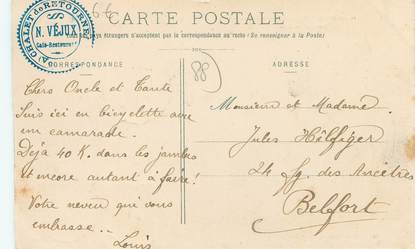 CHALET de RETOURNEM
N. VÉJUX
Café-Restaurant
6€
CARTE POSTALE
pays étrangers n'acceptent pas la correspondance au recto (Se renseigner à la Poste)
CORRESPONDANCE
88
ADRESSE
Chers Oncle et Tante
Suis ici en bicyclette avec
un camarade.
Déjà 40 K. dans les jambes
et encore autant à faire!
Votre neveu qui vous
embrasse..
Louis
Monsieur et Madame
Jules Helfiger
24 Fg. des Ancêtres
Belfort